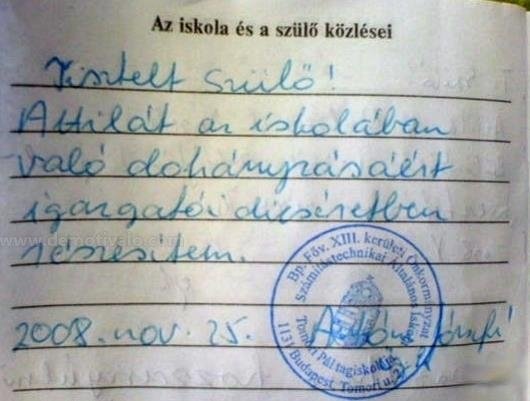 Az iskola és a szülő közlései
Tisztelt Szülő!
Attilát az iskolában
való dohányzásáért
igazgatói dicséretben
részesítem.
www.demotivalo.com
2008. nov. 25.
Bp. Főv. XIII. kerületi Önkormányzat
Számítástechnikai Általános Iskola
Tomori Pál tagiskolája
1131 Budapest, Tomori u. 2.